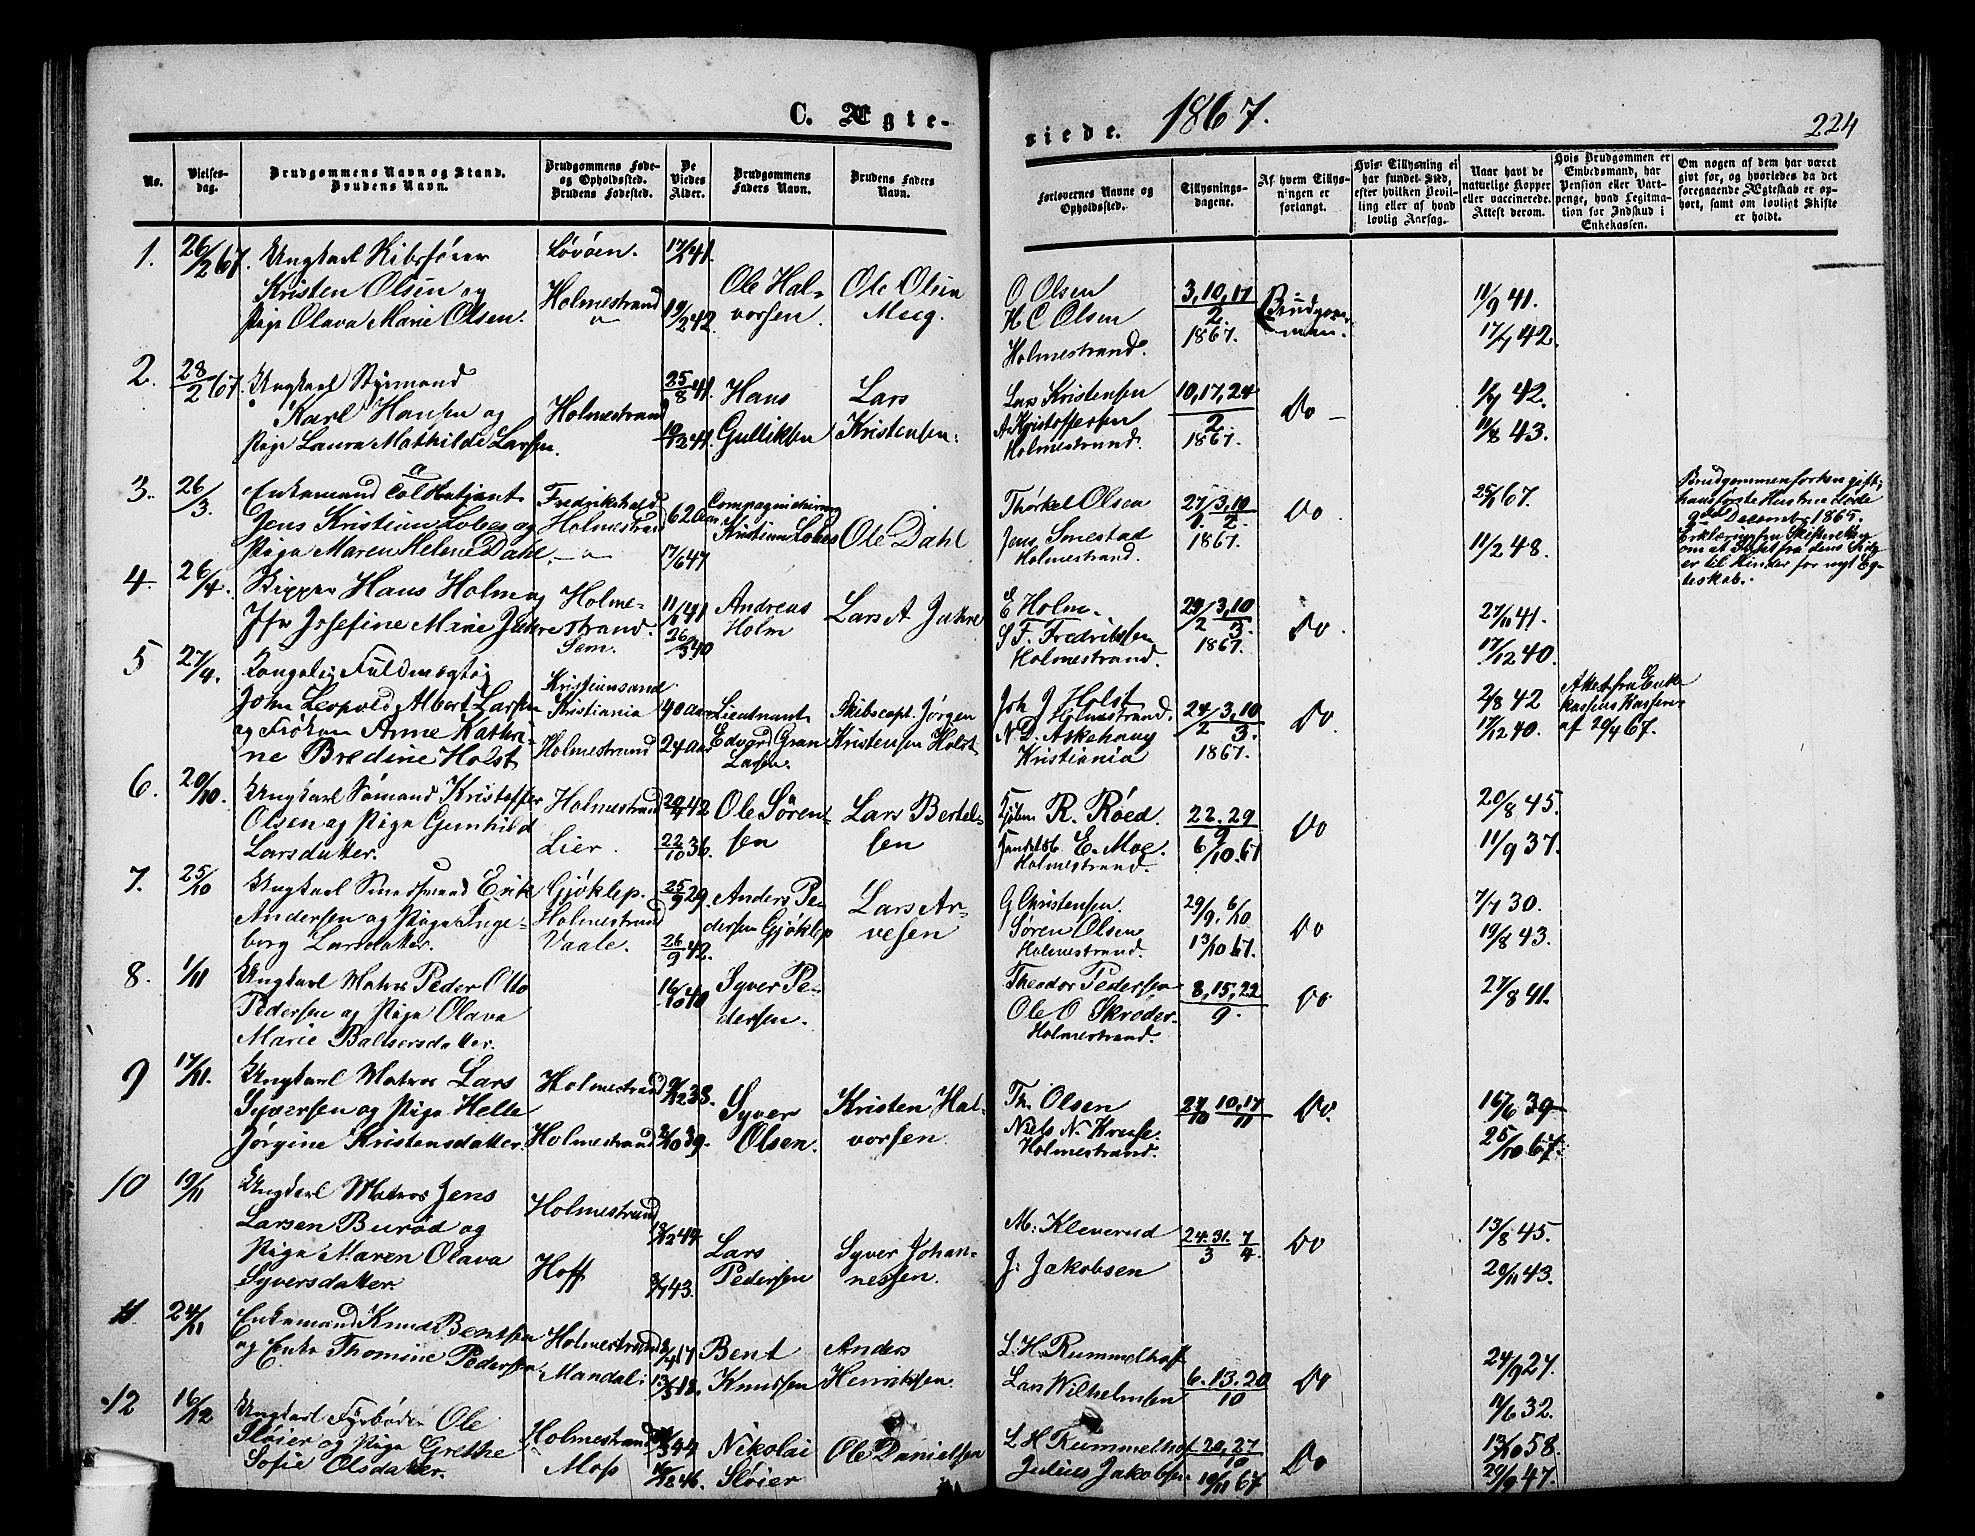 C. Ægte-
viede. 1867.
224
No.
Vielses-
dag.
Brudgommens Navn og Stand.
Brudens Navn.
Brudgommens Føde-
og Opholdssted.
Brudens Fødested.
De
Viedes
Alder.
Brudgommens
Faders Navn.
Brudens Faders
Navn.
Forlovernes Navne og
Opholdssted.
Tillysnings-
dagene.
Af hvem Tillys-
ningen er
forlangt.
Hvis Tillysning ei
har fundet Sted,
efter hvilken Bevil-
ling eller af hvad
lovlig Aarsag.
Naar havt de
naturlige Kopper
eller vaccinerede.
Attest derom.
Hvis Brudgommen er
Embedsmand, har
Pension eller Vart-
penge, hvad Legitma-
tion for Indskud i
Enkekassen.
Om nogen af dem har været
gift før, og hvorledes da det
foregaaende Ægteskab er op-
hørt, samt om lovligt Skifte
er holdt.
1. 26/2 67. Ungkarl
Kristen Olsen og
Pige Olava Marie Olsen.
Løvøen.
Holmestrand
"
19/2 42.
Ole Hal-
vorsen.
Ole Olsen
O Olsen
H C Olsen
Holmestrand.
3, 10, 17
2
1867.
Brudgom-
men.
11/9 41.
2. 28/2 67. Ungkarl Styrmand
Karl Hansen og
Pige Laura Mathilde Larsen.
Holmestrand
25/8 41.
Hans
Gulliksen
Lars
Kristensen.
Lars Kristensen
A Kristoffersen
Holmestrand.
10, 17, 24
2
1867.
Do -
11/8 43.
3. 26/3. Enkemand
Jens Kristian Lobes og
Pige Maren Helene Dahl.
Fredrikshald
Holmestrand
"
62 aar
17/6 47
Kristian Lobes
Ole Dahl
Thorkel Olsen
Jens Smestad
Holmestrand
27/1 3, 10/2
1867.
Do.
11/2 48.
Brudgommen forhen gift,
hans første Hustru døde
9de December 1865.
4. 26/4. Hans Holm og
Jfr Josefine Marie Jahre
Holme-
strand.
Sem.
11/1 41
Andreas
Holm
Lars A Jahre
E Holm.
S F. Fredriksen
Holmestrand.
24/2 3, 10/3
1867.
Do.
27/11 41.
17/12 40.
5 27/4. Fuldmægtig
John Leopold Albert Larsen
og Frøken Anne Kathri-
ne Bredine Holst
Kristiansand
Kristiania
Holmestrand
40 aar
24 aar
Lieutnant
Edvard Gran
Larsen.
Skibscapt. Jørgen
Kristensen Holst
Joh J Holst
Holmestrand.
N D. Askehaug
Kristiania
24/2 3, 10/3
1867.
Do.
2/8 42
17/12 40.
Attest fra Enke-
kassens Kasserer
af 29/4 67.
6. 20/10. Ungkarl Sømand Kristoffer
Olsen og Pige Gunhild
Larsdatter.
Holmestrand
Lier.
22/10 36.
Ole Søren-
sen
Lars Bertel-
sen
R. Røed.
E. Moe.
Holmestrand.
22. 29
9
6/10. 67
Do
20/8 45.
11/9 37.
7. 25/10 Ungkarl Erik
Andersen og Pige Inge-
borg Larsdatter.
Gjøklep.
Holmestrand
Vaale.
25/9 29.
26/9 42.
Anders Pe-
dersen Gjøklep
Lars Ar-
vesen
G Christensen.
Søren Olsen
Holmestrand.
29/9. 6/10
13/10 67.
Do
7/7 30.
19/8 43.
8. 1/11 Ungkarl Matros Peder Otto
Pedersen og Pige Olava
Marie Baltsersdatter.
16/10 40
Syver Pe-
dersen.
Theodor Pedersen
Ole O Skrøder.
Holmestrand.
8, 15, 22
9.
Do
27/8 41.
9 17/11. Ungkarl Matros Lars
Syversen og Pige Helle
Jørgine Kristensdatter.
Holmestrand
Holmestrand
Syver
Olsen.
Kristen Hal-
vorsen.
Th. Olsen
Niels N. Kruse.
Holmestrand.
27/10 10, 17/11
Do.
16/6 39
25/10 67.
10 19/11 Ungkarl Matros Jens
Larsen Burød og
Pige Maren Olava
Syversdatter.
Holmestrand
Hoff
Lars
Pedersen
Syver Johan-
nessen.
M. Kleverud
J. Jakobsen
24. 31./3 7/4.
Do
13/8 45.
20/11 43.
11 24/11 Enkemand Knud Bentsen
og Enke Thomine Pedersen
Holmestrand
Mandal.
Bent
Knutsen
Anders
Henriksen
L. H. Rummelhoff
Lars Wilhelmsen
6. 13. 20
10
Do
24/9 27.
11/6 32.
12 16/12 Ungkarl Fyrbøder Ole
Sløier og Pige Grethe
Sofie Olsdatter.
Holmestrand
Moss
Nikolai
Sløier
Ole Danielsen
L H Rummelhof
Julius Jakobsen
20, 27
10
10/11 67.
Do
13/10 58.
29/9 47.